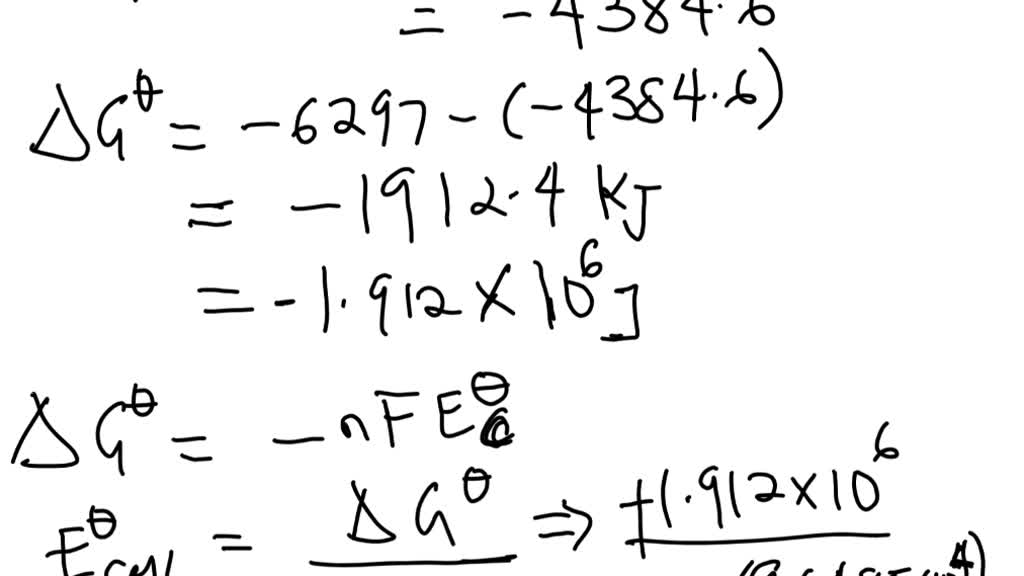 = -4384.6
ΔG^θ = -6297 - (-4384.6)
= -1912.4 KJ
= -1.912 × 10^6 J
ΔG^θ = -nFE^θ
E^θcell = ΔG^θ ⇒ +1.912×10^6